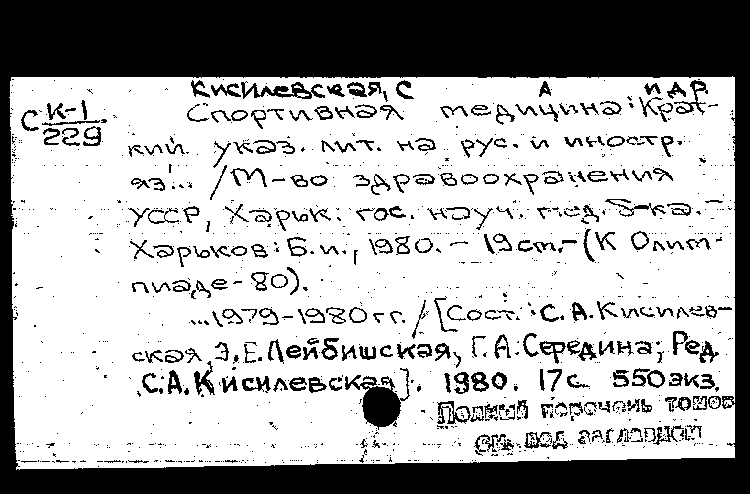 Кисилевская, С А и др.
С К-1
229
Спортивная медицина: Крат-
кий указ. лит. на рус. и иностр.
яз... / М-во здравоохранения
УССР, Харьк. гос. науч. мед. б-ка. -
Харьков: Б. и., 1980. - 19 cm. - (К Олим-
пиаде-80).
...1979-1980 гг. / [Сост.: С. А. Кисилев-
ская, Э. Е. Лейбишская, Г. А. Середина; Ред.
С. А. Кисилевская]. 1980. 17 с. 550 экз.
Полный перечень томов
см. под заглавием